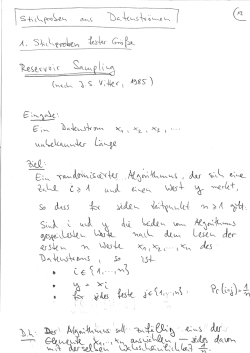 Stichproben aus Datenströmen
1. Stichproben fester Größe
Reservoir Sampling
(nach J.S. Vitter, 1985)
Eingabe:
Ein Datenstrom x₁, x₂, x₃, ...
unbekannter Länge
Ziel:
Ein randomisierter Algorithmus, der sich eine
Zahl i ≥ 1 und einen Wert y merkt,
so dass für jeden Zeitpunkt n ≥ 1 gilt:
Sind i und y die beiden vom Algorithmus
gespeicherten Werte nach dem Lesen der
ersten n Werte x₁, x₂, ..., xₙ des
Datenstroms, so ist
• i ∈ {1,...,n}
• y = xᵢ
• für jedes feste j ∈ {1,...,n}: Pr(i=j) = 1/n
D.h.: Der Algorithmus soll zufällig eins der
Elemente x₁,...,xₙ auswählen – jedes davon
mit derselben Wahrscheinlichkeit 1/n.